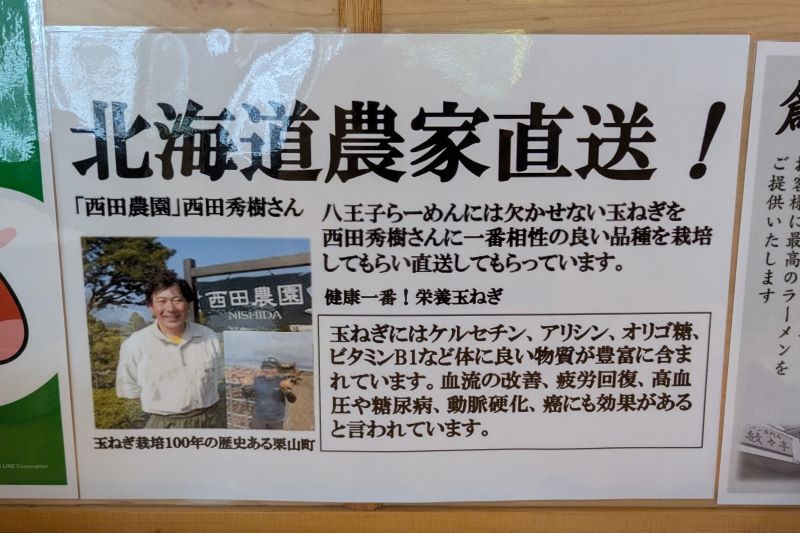 北海道農家直送！
「西田農園」西田秀樹さん
八王子らーめんには欠かせない玉ねぎを
西田秀樹さんに一番相性の良い品種を栽培
してもらい直送してもらっています。
健康一番！栄養玉ねぎ
西田農園
NISHIDA
玉ねぎにはケルセチン、アリシン、オリゴ糖、
ビタミンB1など体に良い物質が豊富に含ま
れています。血流の改善、疲労回復、高血
圧や糖尿病、動脈硬化、癌にも効果がある
と言われています。
玉ねぎ栽培100年の歴史ある栗山町
お客様に最高のラーメンを
ご提供いたします
LINE Corporation